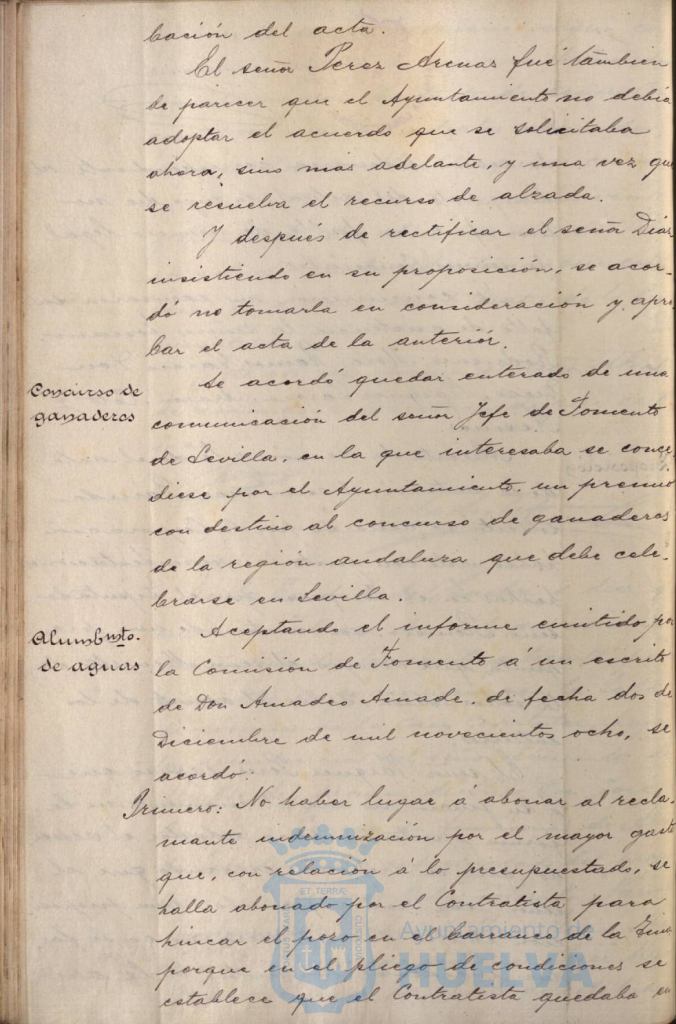 bación del acta.
El señor Perez Arenas fué tambien
de parecer que el Ayuntamiento no debia
adoptar el acuerdo que se solicitaba
ahora, sino mas adelante, y una vez que
se resuelva el recurso de alzada.
Y después de rectificar el señor Diaz
insistiendo en su proposición, se acor-
dó no tomarla en consideración y apro-
bar el acta de la anteriór.
Concurso de
ganaderos
Se acordó quedar enterado de una
comunicación del señor Jefe de Fomento
de Sevilla, en la que interesaba se conce-
diese por el Ayuntamiento, un premio
con destino al concurso de ganaderos
de la región andaluza que debe cele-
brarse en Sevilla.
Alumbmto.
de aguas
Aceptando el informe emitido por
la Comisión de Fomento á un escrito
de Don Amadeo Amade, de fecha dos de
Diciembre de mil novecientos ocho, se
acordó:
Primero: No haber lugar á abonar al recla-
mante indemnización por el mayor gasto
que, con relación á lo presupuestado, se
halla abonado por el Contratista para
hincar el pozo en el barranco de la
porque en el pliego de condiciones se
establece que el Contratista quedaba en
Ayuntamiento de
HUELVA